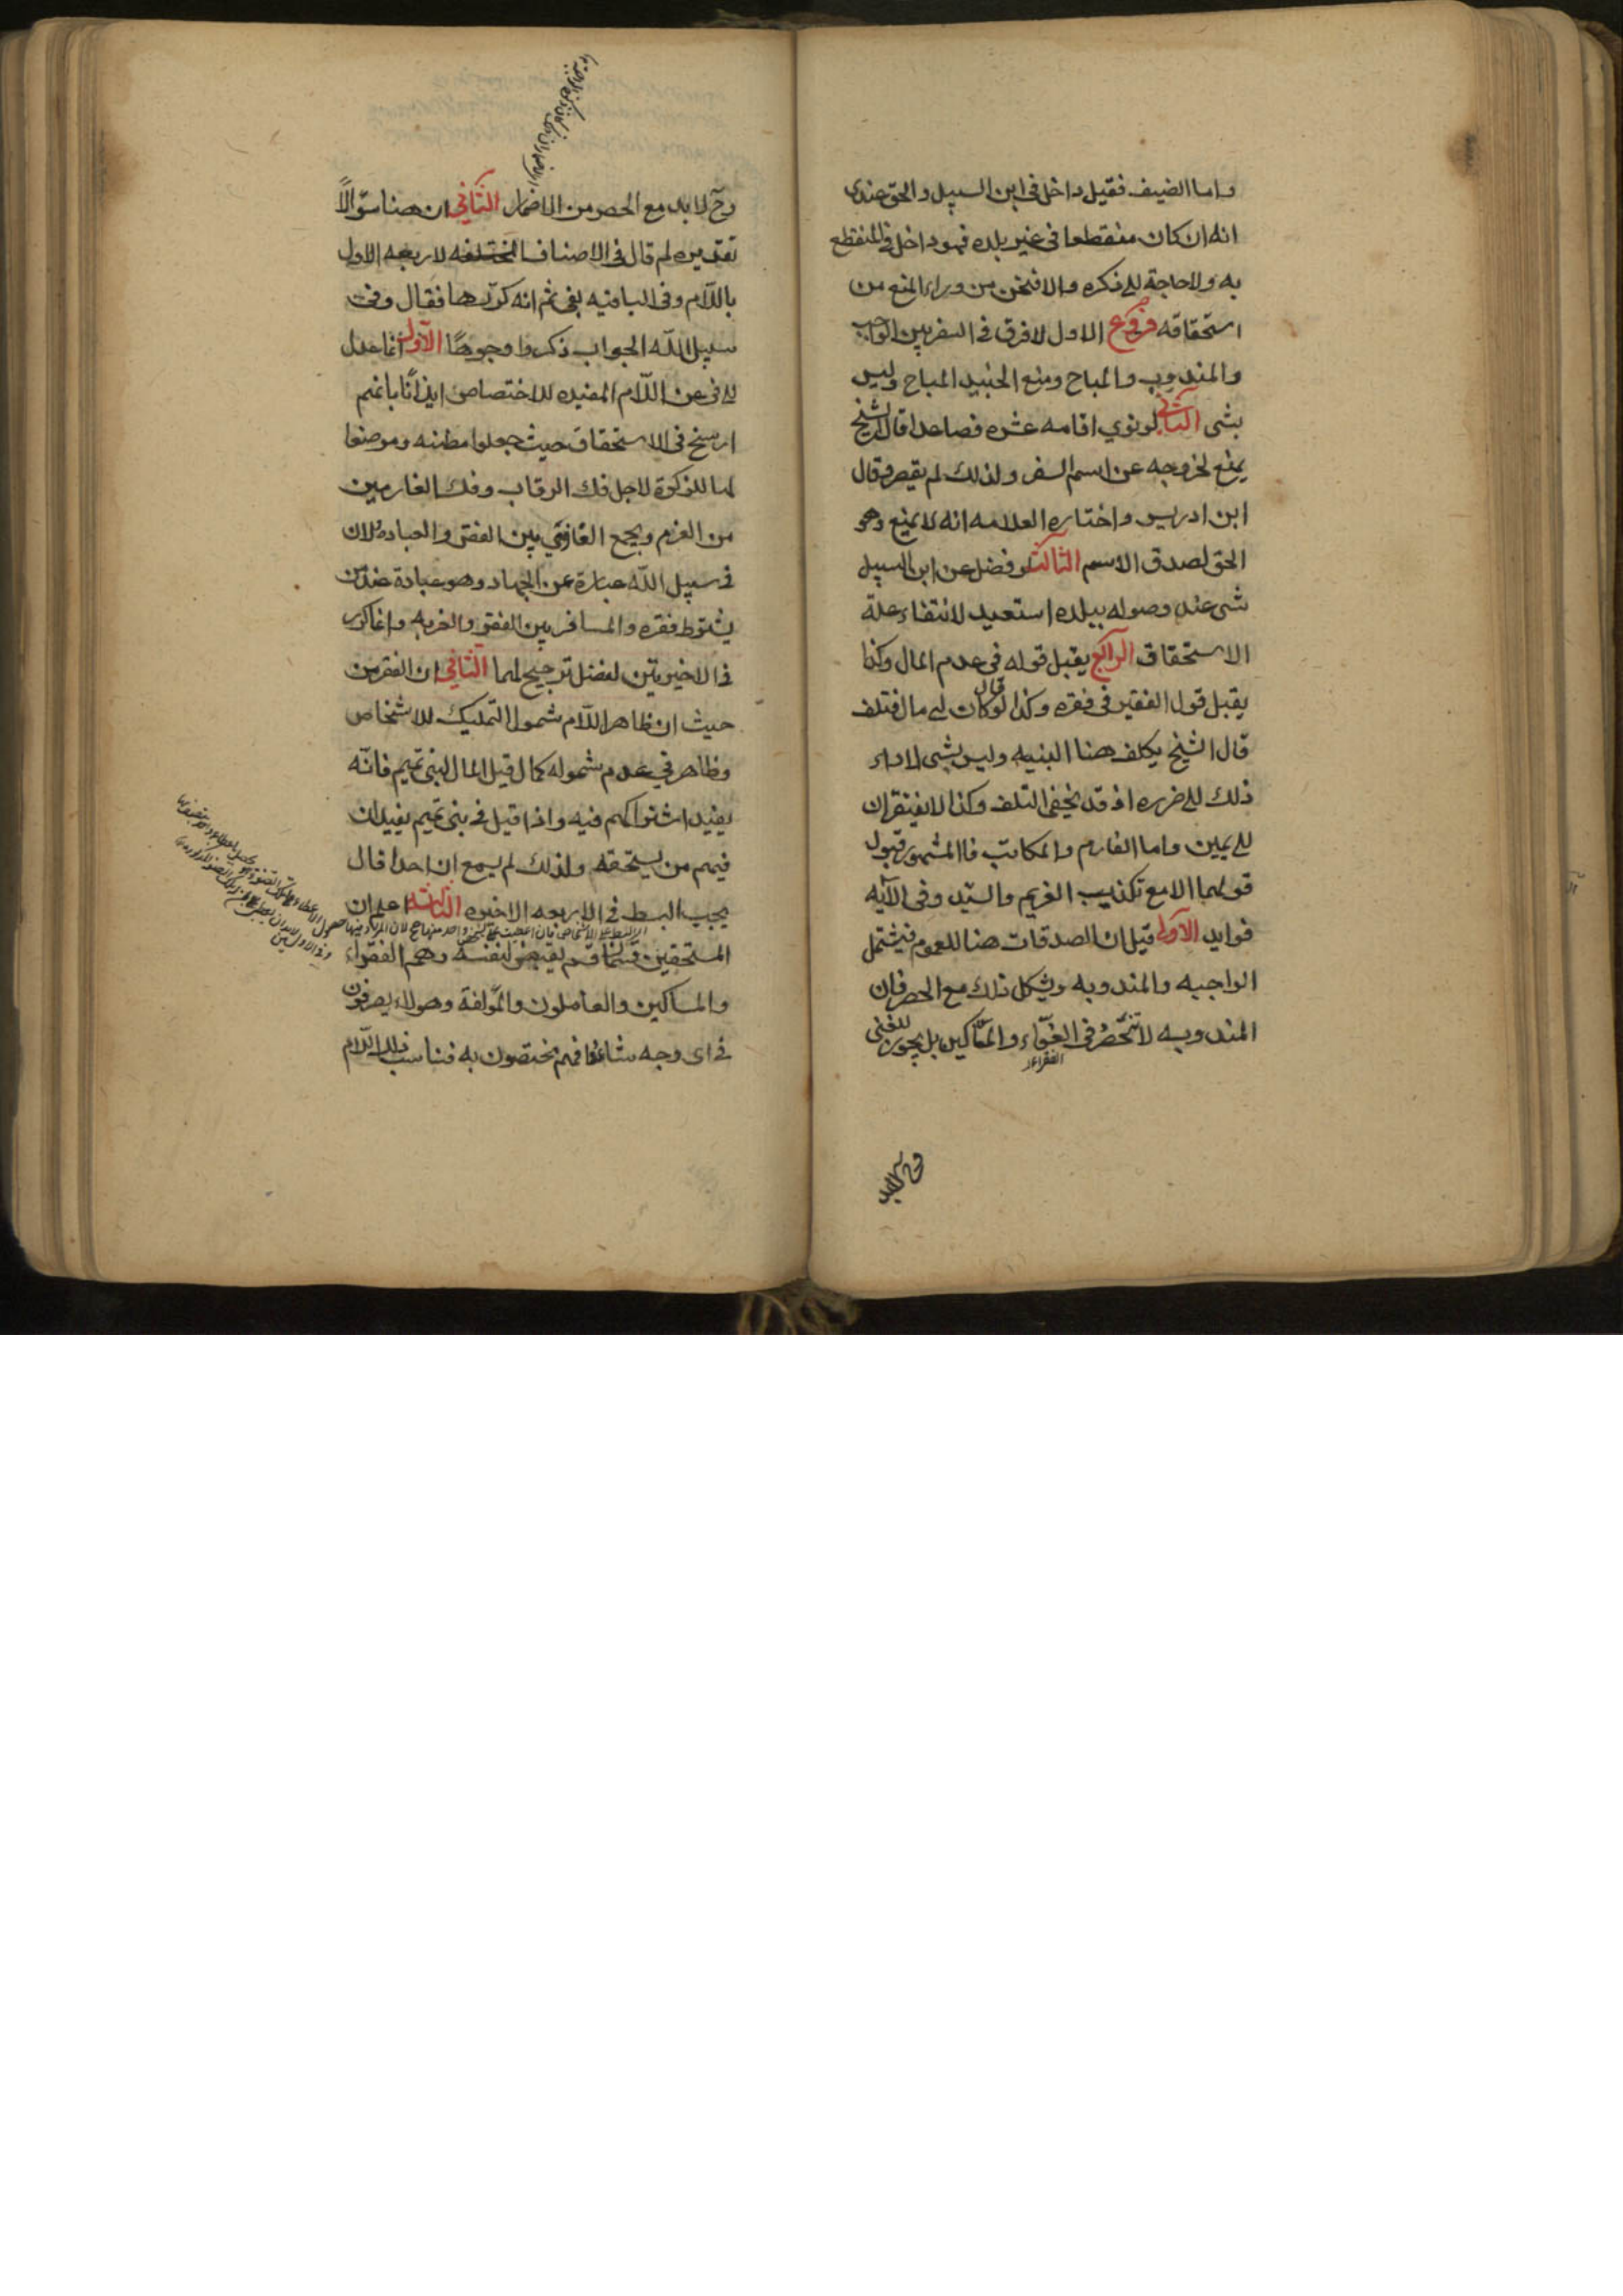 واما الضيف فقيل داخل فى ابن السبيل والحق عندى
انه ان كان منقطعا فى غير بلده فهو داخل فى المنقطع
به ولا حاجة الى ذكره والا فنحن من وراء المنع من
استحقاقه فروع الاول لا فرق فى السفر بين الواجب
والمندوب والمباح ومنع الجنيد المباح وليس
بشى الثانى لو نوى اقامه عشره فصاعدا قال الشيخ
يمنع لخروجه عن اسم السفر ولذلك لم يقصر وقال
ابن ادريس واختاره العلامه انه لا يمنع وهو
الحق لصدق الاسم الثالث لو فضل عن ابن السبيل
شى عند وصوله بلده استعيد لانتفاء علة
الاستحقاق الرابع يقبل قوله فى عدم المال وكذا
يقبل قول الفقير فى فقره وكذا لو قال كان لى مال فتلف
قال الشيخ يكلف هنا البنيه وليس بشى لاداء
ذلك الى ضرره اذ قد يخفى التلف وكذا لا يفتقران
الى يمين واما الغارم والمكاتب فالمشهور قبول
قولهما الا مع تكذيب الغريم والسيد وفى الآيه
فوايد الاولى قيل ان الصدقات هنا للعموم فيشتمل
الواجبه والمندوبه ويشكل ذلك مع الحصر فان
المندوبه لا تنحصر فى الفقراء والمساكين بل يجوز للغنى
الفقراء
وح لا بد مع الحصر من الاضمار الثانى ان هنا سؤالًا
تقديره لم قال فى الاصناف المختلفه لاربعه الاول
باللام وفى الباقيه بفى ثم انه كررها فقال وفى
سبيل الله الجواب ذكروا وجوهًا الاول انما عدل
الى فى عن اللام المفيده للاختصاص ايذانًا بانهم
ارسخ فى الاستحقاق حيث جعلوا مظنه وموضعا
لها للزكوة لاجل فك الرقاب وفك الغارمين
من الغرم ويجمع الغازى بين الفقر والعباده لان
فى سبيل الله عبارة عن الجهاد وهو عبادة عند من
يشترط فقره والمسافر بين الفقر والغربه وانما كرر
فى الاخيرتين لفضل ترجيح لهما الثانى ان الفقر من
حيث ان ظاهر اللام شمول التمليك للاشخاص
وظاهر فى عدم شموله كما لو قيل المال لبنى تميم فانه
يفيد اشتراكهم فيه واذا قيل فى بنى تميم يفيد ان
فيهم من يستحقه ولذلك لم يسمع ان احدا قال
يجب البسط فى الاربعه الاخيره الثالث اعلم ان
المستحقين قسمان قسم يقبض لنفسه وهم الفقراء
والمساكين والعاملون والمؤلفة وهولاء يصرفون
فى اى وجه شاءوا فهم يختصون به فناسب ذلك اللام